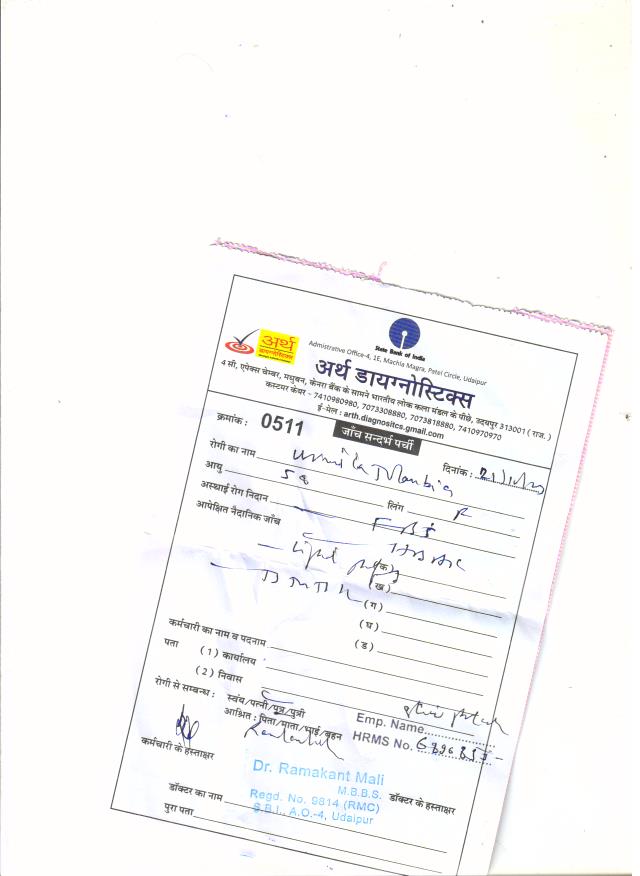 State Bank of India
Admistrative Office-4, 1E, Machla Magra, Patel Circle, Udaipur
अर्थ
डायग्नोस्टिक्स
अर्थ डायग्नोस्टिक्स
4 सी, एपेक्स चेम्बर, मधुबन, केनरा बैंक के सामने भारतीय लोक कला मंडल के पीछे, उदयपुर 313001 ( राज. )
कस्टमर केयर - 7410980980, 7073308880, 7073818880, 7410970970
ई-मेल : arth.diagnositcs.gmail.com
क्रमांक : 0511 जाँच सन्दर्भ पर्ची
रोगी का नाम Urmila दिनांक :
आयु 58 लिंग F
अस्थाई रोग निदान
आपेक्षित नैदानिक जाँच FBS
(क) HbA1c
(ख) Lipid profile
(ग)
(घ)
(ड)
कर्मचारी का नाम व पदनाम
पता ( 1 ) कार्यालय
( 2 ) निवास
रोगी से सम्बन्ध : स्वंय/पत्नी/पुत्र/पुत्री
आश्रित : पिता/माता/भाई/बहन
Emp. Name
HRMS No.
कर्मचारी के हस्ताक्षर
Dr. Ramakant Mali
M.B.B.S.
Regd. No. 9814 (RMC)
S.B.I., A.O.-4, Udaipur
डॉक्टर के हस्ताक्षर
डॉक्टर का नाम
पुरा पता